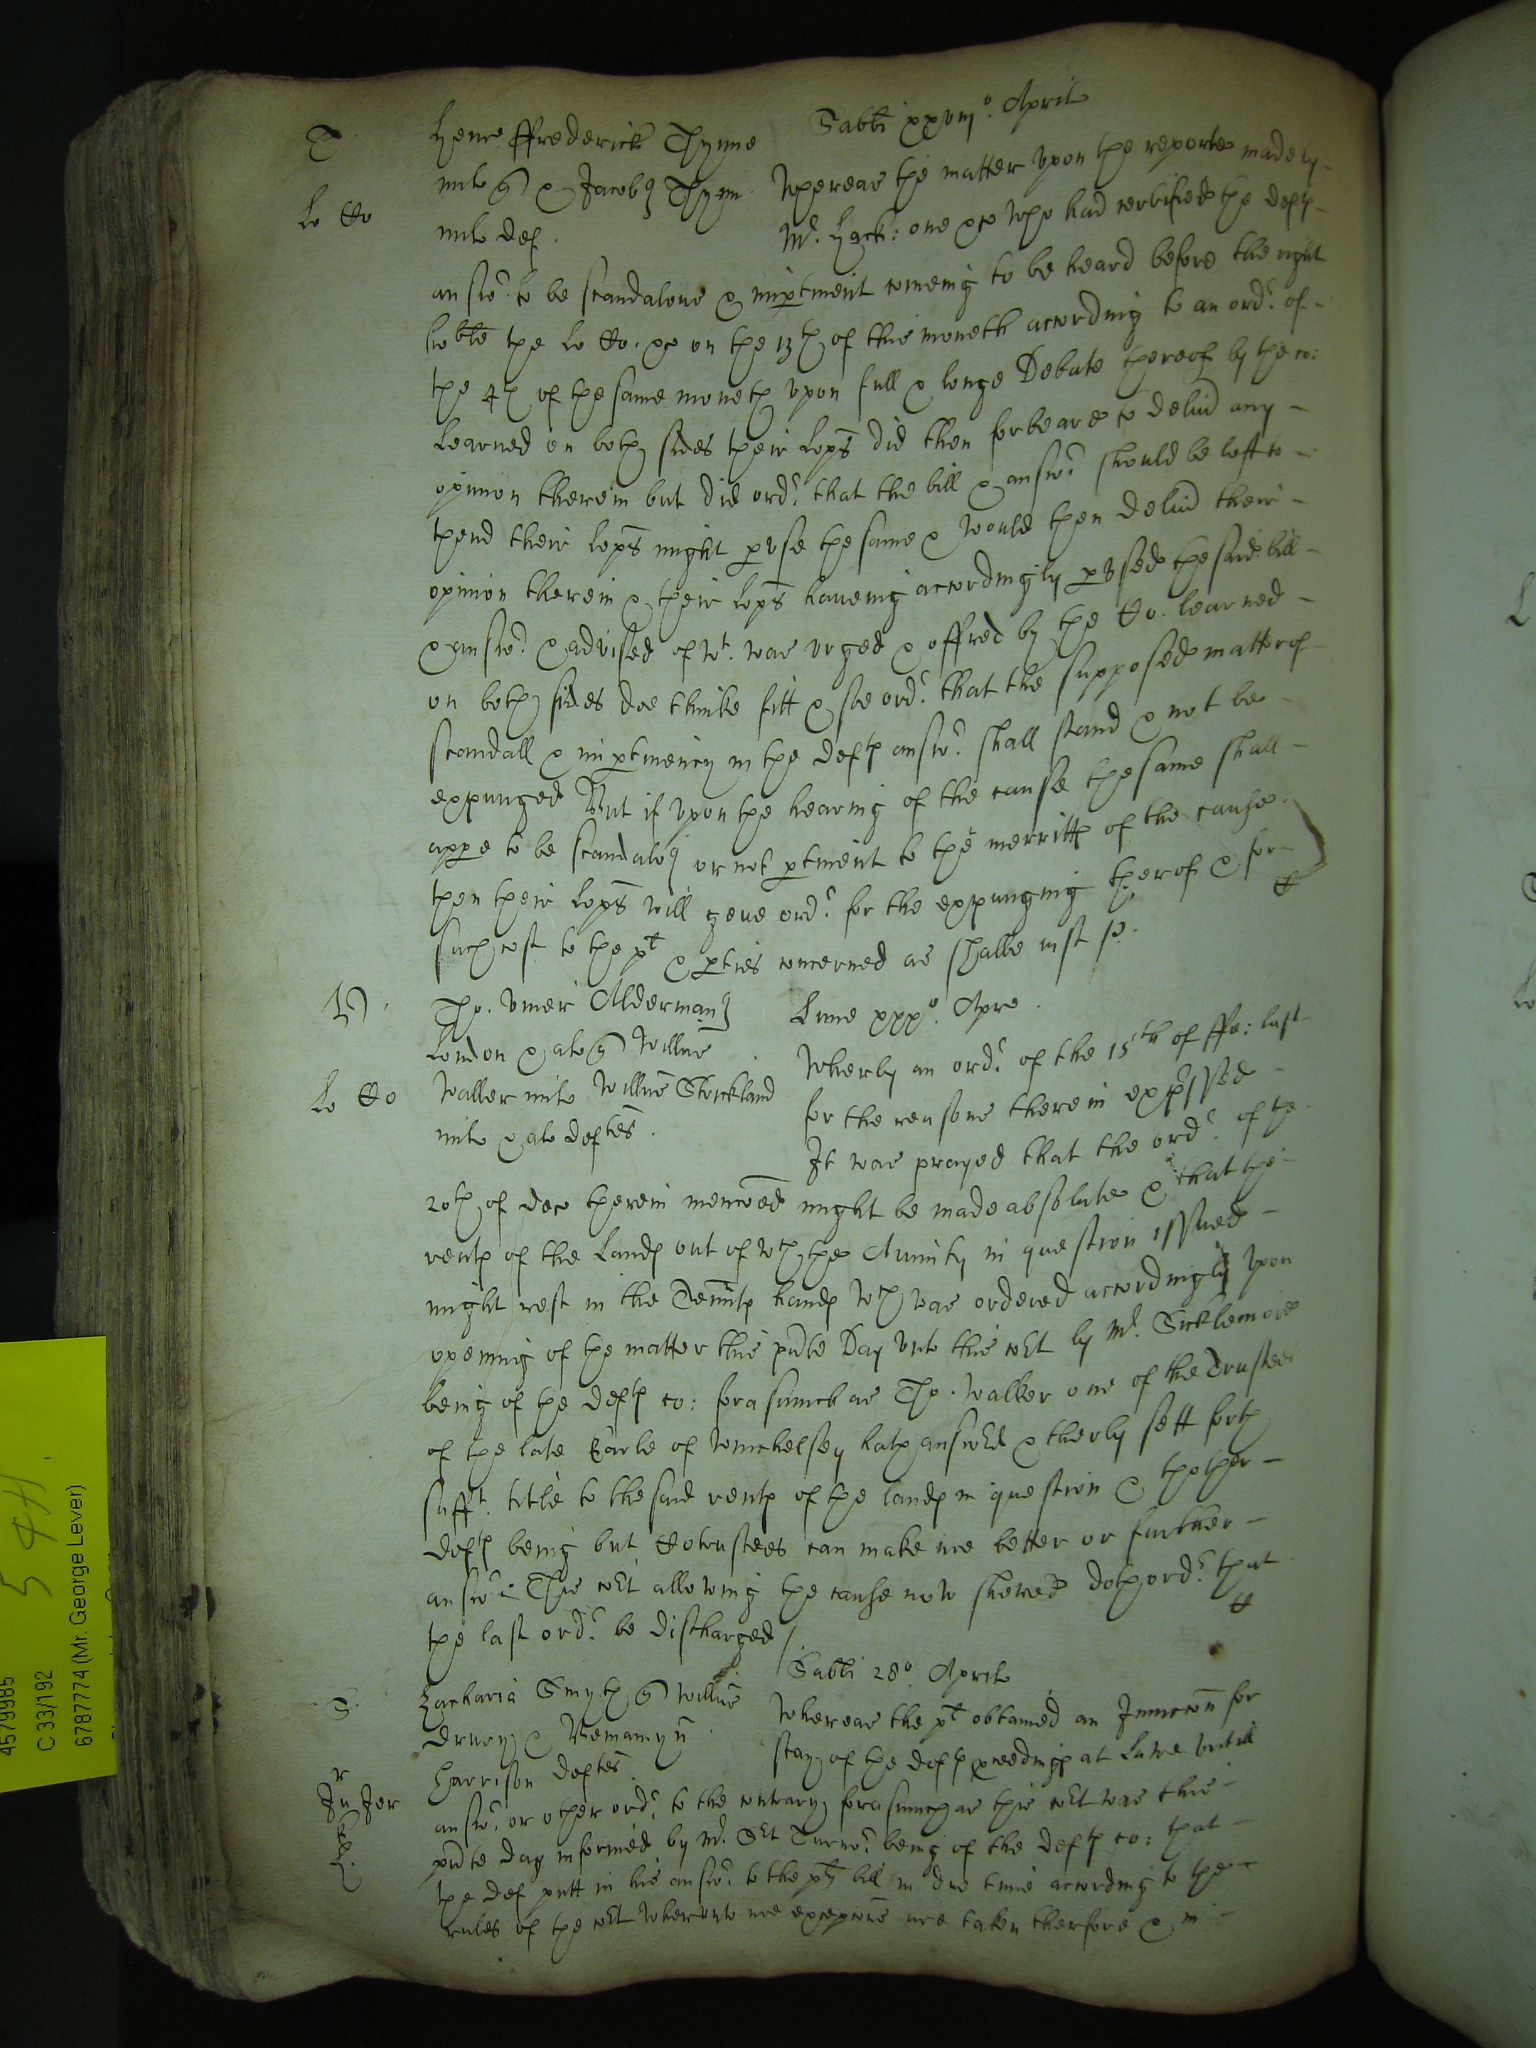 Sabti xxviijo. April
T. Henr ffrederick Thynne
milt q & Jacob Thynn Whereas the matter upon the reporte made by
Lo Co milt def. Mr. Hack: one &c who had certified the defts
answr. to be scandalous & imptinent comeing to be heard before the right
hoble the Lo Co. &c on the 13th of this moneth according to an ordr. of
the 4th of the same moneth upon full & longe Debate thereof by the co:
Learned on both sides their Lopps did then forbeare to deliu any
opinion therein but did ordr. that the bill & answr. should be left to
thend their Lopps might puse the same & would then deliu their
opinion therein & their Lopps haueing accordingly pused the said bill
& answr. & advised of wt. was urged & offred by the Co. learned
on both sides doe thinke fitt & soe ordr. that the supposed matter of
scandall & imptinency in the defts answr. shall stand & not be
expunged But if upon the hearing of the cause the same shall
appe to be scandalo or not ptinent to the merritts of the cause
then their Lopps will geue ordr. for the expunging therof & for
such cost to the plt & pties concerned as shalbe iust &c.
Tho. Viner Alderman Lune xxxo. Apre.
London & al q Willm
Waller milt Willm Strickland Wherby an ordr. of the 15th of ffe: last
Lo Co milt & al deftes. for the reasons therein expssed
It was prayed that the ordr. of the
20th of Dec therein menconed might be made absolute & that the
rents of the Lands out of wch the Annuity in question issued
might rest in the Tennts hands wch was ordered accordingly upon
opening of the matter this pnte Day unto this Cort by Mr. Sicklemore
being of the defts co: forasmuch as Tho. Walker one of the Trustees
of the late Earle of Winchelsey hath answed & therby sett forth
sufft. title to the said rents of the lands in question & thother
defts being but Cotrustees can make noe better or further
answr. This Cort allowing the cause now shewed doth ordr. that
the last ordr. be discharged /
Sabti 28o. Aprilis
S. Zacharia Smyth q Willm
Drury & Beniamyn Whereas the plt obtained an Iniuccon for
Harrison deftes. stay of the defts pceedings at Lawe untill
answr. or other ordr. to the contrary forasmuch as this Cort was this
pnte day informed by Mr. Sct Turnor. being of the defts co: that
the def putt in his answr. to the plts bill in due time according to the
rules of the Cort wherunto noe excepcons are taken therfore & in
4579985
C 33/192
6787774 (Mr. George Lever)